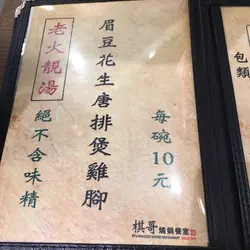 老火靚湯
絕不含味精
眉豆花生唐排煲雞腳
每碗10元
棋哥燒鵝餐室
包
類